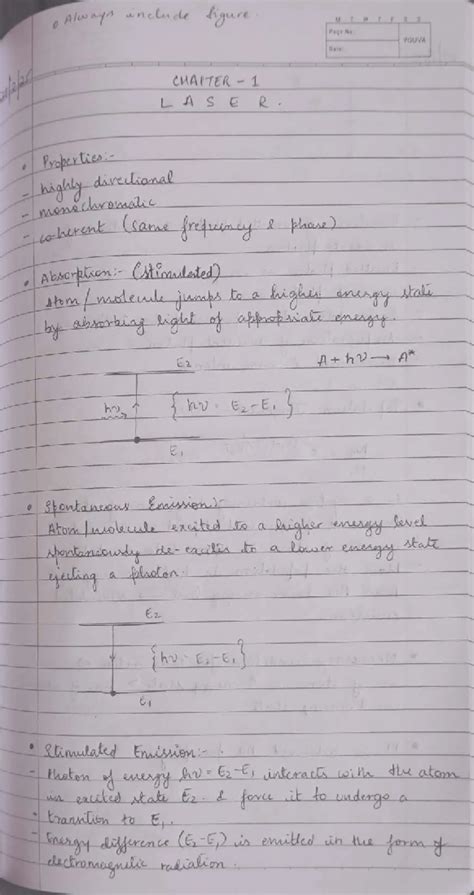 • Always include figure.
Page No.:
Date:
YOUVA
CHAPTER - 1
L A S E R.
• Properties:-
- highly directional
- monochromatic
- coherent (same frequency & phase)
• Absorption:- (stimulated)
Atom/molecule jumps to a higher energy state
by absorbing light of appropriate energy.
E2
A + hν → A*
hν
{hν = E2 - E1}
E1
• Spontaneous Emission:-
Atom/molecule excited to a higher energy level
spontaneously de-excites to a lower energy state
ejecting a photon.
E2
{hν = E2 - E1}
E1
• Stimulated Emission:-
- Photon of energy hν = E2 - E1 interacts with the atom
in excited state E2 & force it to undergo a
transition to E1.
- Energy difference (E2 - E1) is emitted in the form of
electromagnetic radiation.